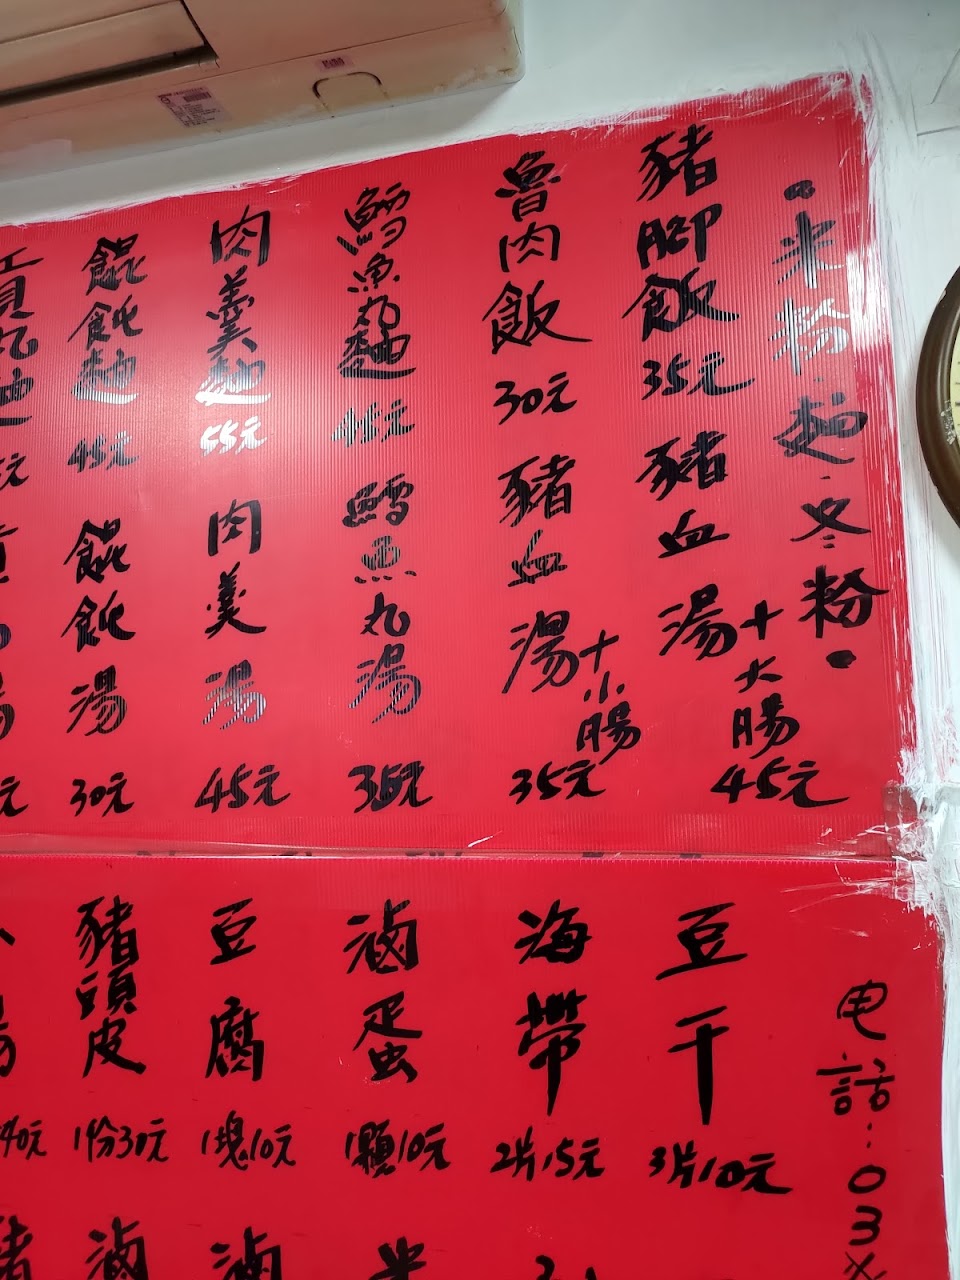 ·米粉·麵·冬粉·
豬腳飯35元
豬血湯+大腸45元
魯肉飯30元
豬血湯+小腸35元
鱈魚丸麵45元
鱈魚丸湯35元
肉羹麵55元
肉羹湯45元
餛飩麵45元
餛飩湯30元
貢丸麵
电話:03
豆干3片10元
海帶2片15元
滷蛋1顆10元
豆腐1塊10元
豬頭皮1份30元
40元
滷
滷
豬